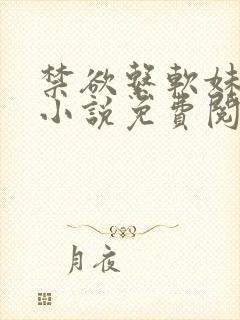 禁欲繫軟妹
小說免費閱
月夜